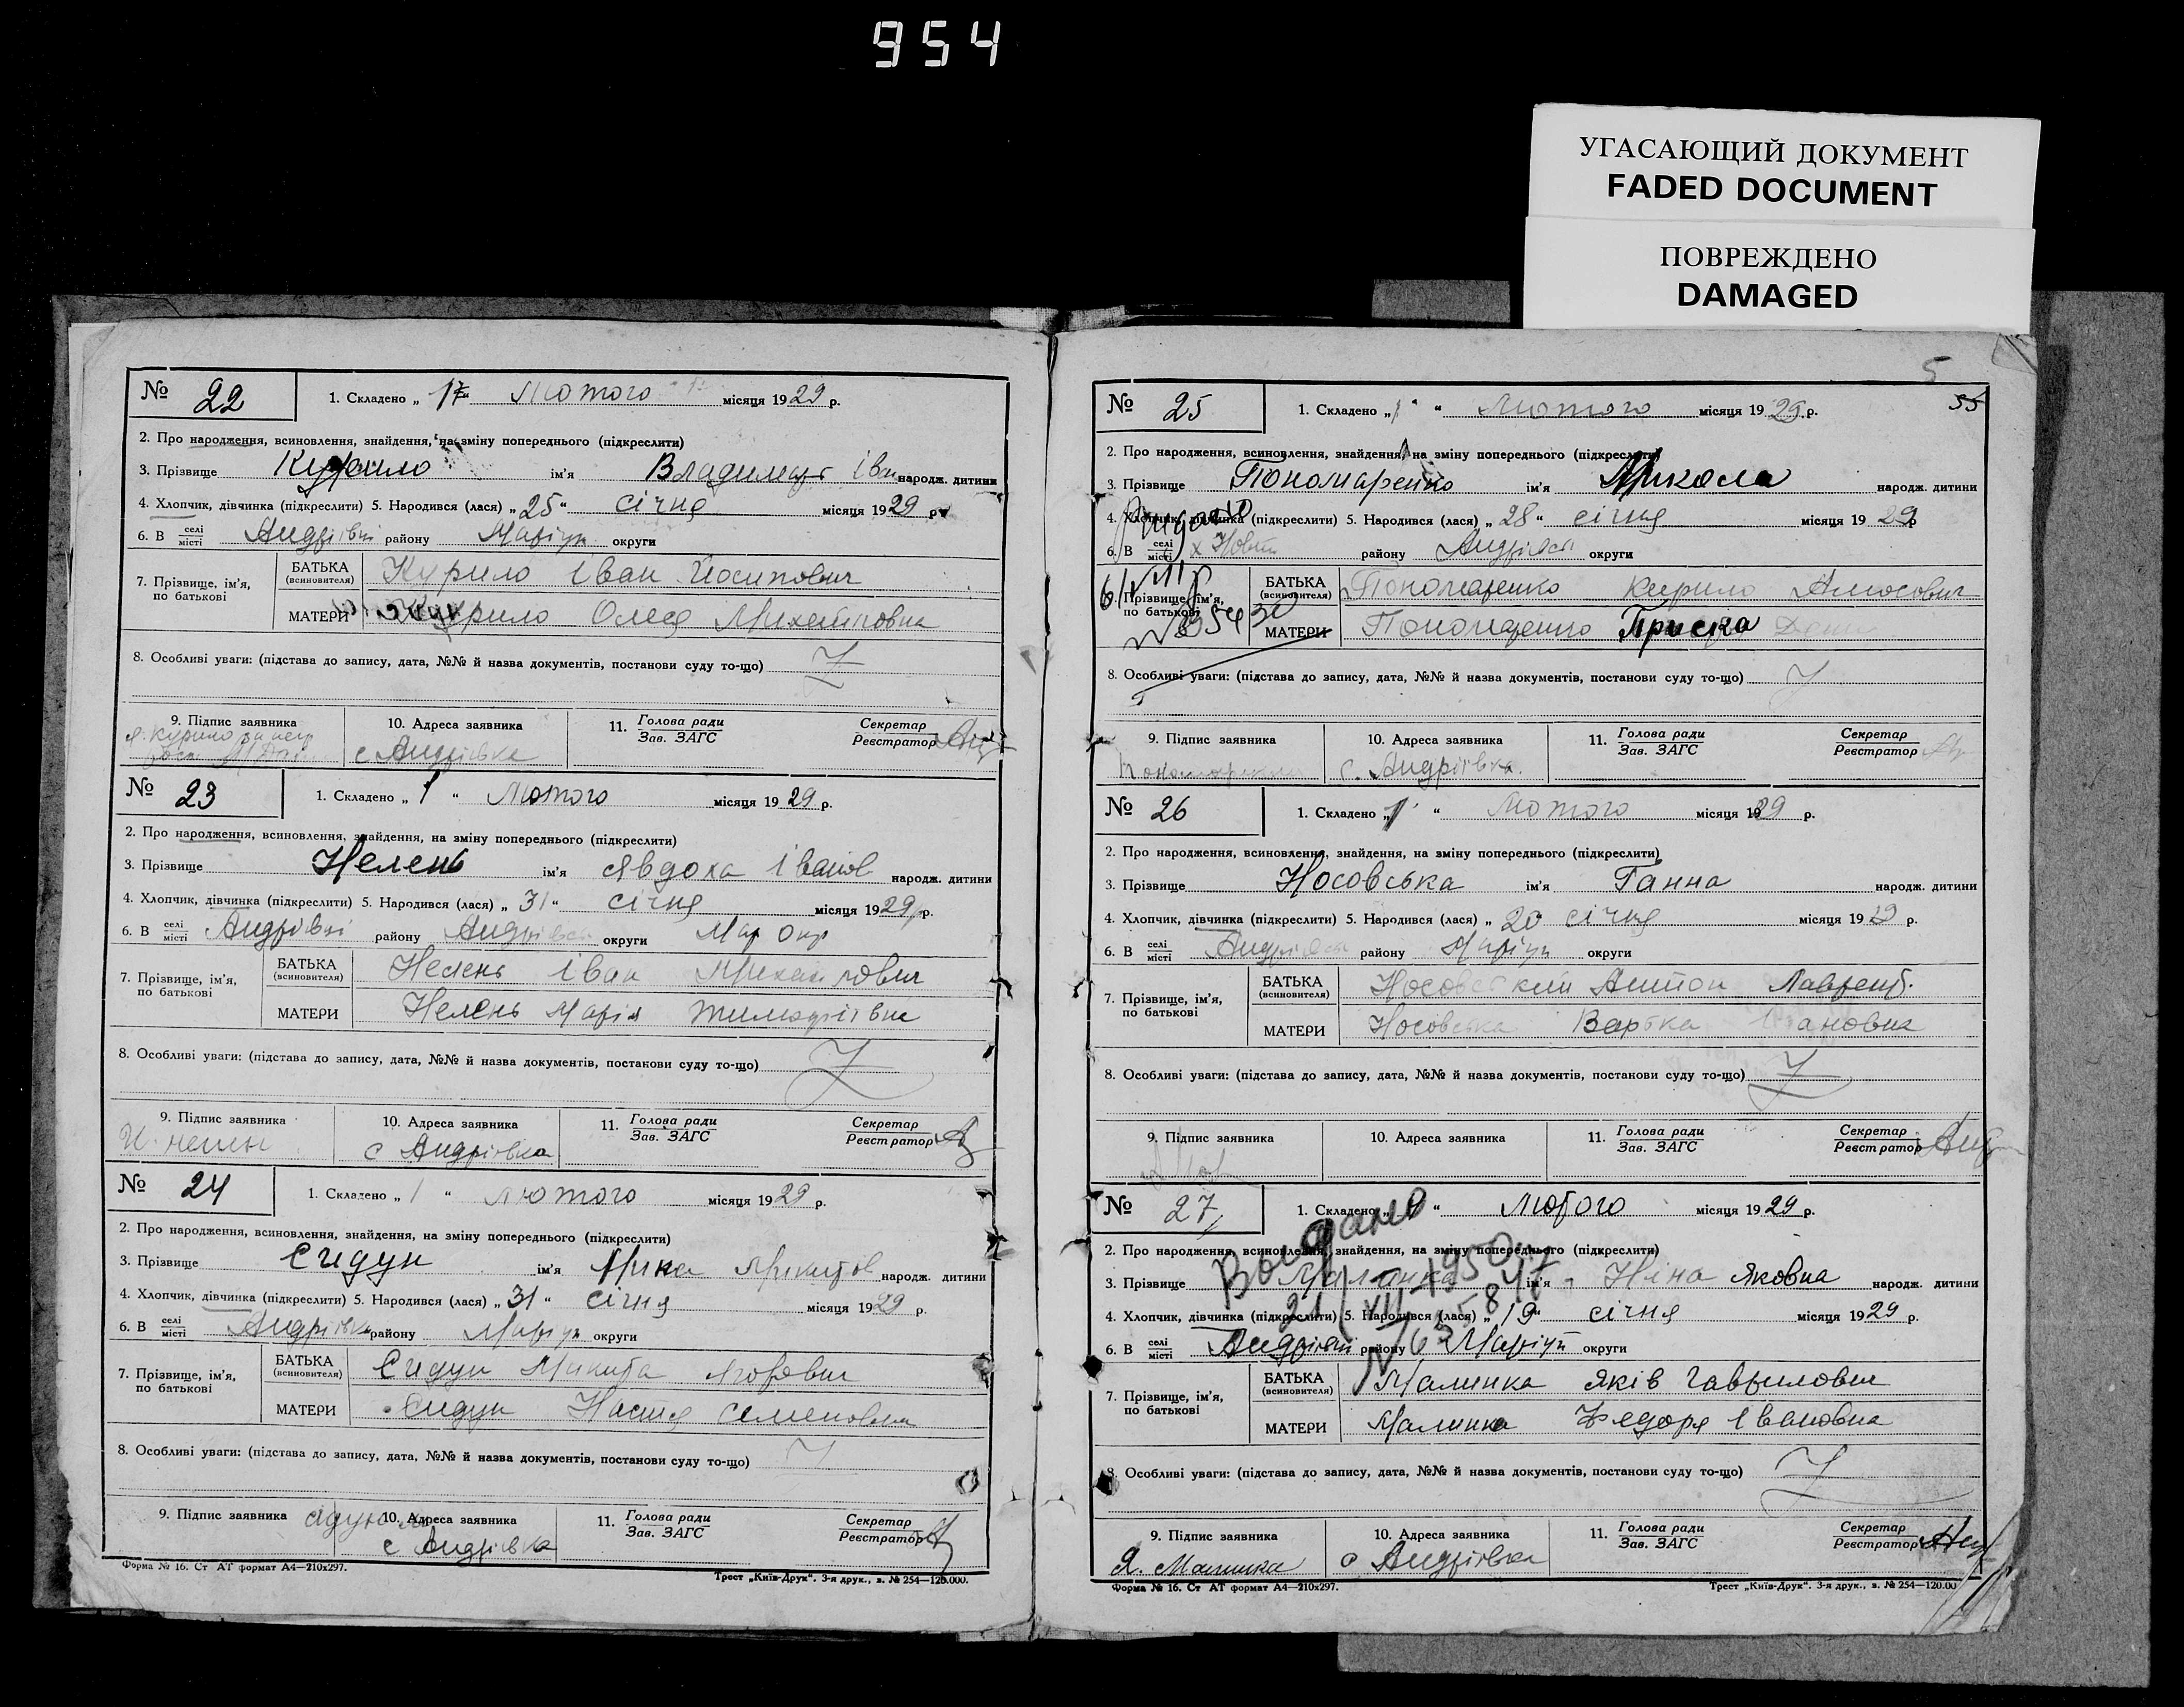 954
УГАСАЮЩИЙ ДОКУМЕНТ
FADED DOCUMENT
ПОВРЕЖДЕНО
DAMAGED
№ 22
1. Складено „ 17 “ Лютого місяця 1929 р.
2. Про народження, всиновлення, знайдення, на зміну попереднього (підкреслити)
3. Прізвище Курило ім'я Владимир Іван народж. дитини
4. Хлопчик, дівчинка (підкреслити) 5. Народився (лася) „ 25 “ січня місяця 1929 р.
6. В селі місті Андріївці району Маріуп округи
7. Прізвище, ім'я, по батькові
БАТЬКА (всиновителя) Курило Іван Йосипович
МАТЕРИ Курило Олеся Михайловна
8. Особливі уваги: (підстава до запису, дата, №№ й назва документів, постанови суду то-що) Z
9. Підпис заявника
10. Адреса заявника
11. Голова ради Зав. ЗАГС
Секретар Реєстратор
с Андріівка
№ 23
1. Складено „ 1 “ Лютого місяця 1929 р.
2. Про народження, всиновлення, знайдення, на зміну попереднього (підкреслити)
3. Прізвище Нелень ім'я Явдоха Іванов народж. дитини
4. Хлопчик, дівчинка (підкреслити) 5. Народився (лася) „ 31 “ січня місяця 1929 р.
6. В селі місті Андрівці району Андріівск округи Мар Окр
7. Прізвище, ім'я, по батькові
БАТЬКА (всиновителя) Нелень Іван Михайлович
МАТЕРИ Нелень Марія Тимофіївна
8. Особливі уваги: (підстава до запису, дата, №№ й назва документів, постанови суду то-що) Z
9. Підпис заявника
10. Адреса заявника
11. Голова ради Зав. ЗАГС
Секретар Реєстратор
с Андріівка
№ 24
1. Складено „ 1 “ лютого місяця 1929 р.
2. Про народження, всиновлення, знайдення, на зміну попереднього (підкреслити)
3. Прізвище Сидун ім'я Микитов народж. дитини
4. Хлопчик, дівчинка (підкреслити) 5. Народився (лася) „ 31 “ січня місяця 1929 р.
6. В селі місті Андріівка району Маріуп округи
7. Прізвище, ім'я, по батькові
БАТЬКА (всиновителя) Сидун Микита
МАТЕРИ Сидун Настя Семеновна
8. Особливі уваги: (підстава до запису, дата, №№ й назва документів, постанови суду то-що) Z
9. Підпис заявника
10. Адреса заявника
11. Голова ради Зав. ЗАГС
Секретар Реєстратор
с Андріівка
Форма № 16. Ст АТ формат А4—210х297.
Трест „Київ-Друк“. 3-я друк., з. № 254—120.000.
5
55
№ 25
1. Складено „ 1 “ Лютого місяця 1929 р.
2. Про народження, всиновлення, знайдення, на зміну попереднього (підкреслити)
3. Прізвище Пономаренко ім'я Микола народж. дитини
4. Хлопчик, дівчинка (підкреслити) 5. Народився (лася) „ 28 “ січня місяця 1929
6. В селі місті району Андріівск округи
7. Прізвище, ім'я, по батькові
БАТЬКА (всиновителя) Пономаренко Кирило Амосович
МАТЕРИ Пономаренко Приска
8. Особливі уваги: (підстава до запису, дата, №№ й назва документів, постанови суду то-що) Z
9. Підпис заявника
10. Адреса заявника
11. Голова ради Зав. ЗАГС
Секретар Реєстратор
с. Андріівка.
№ 26
1. Складено „ 1 “ Лютого місяця 1929 р.
2. Про народження, всиновлення, знайдення, на зміну попереднього (підкреслити)
3. Прізвище Носовська ім'я Ганна народж. дитини
4. Хлопчик, дівчинка (підкреслити) 5. Народився (лася) „ 20 січня місяця 1929 р.
6. В селі місті Андріївськ району Маріуп округи
7. Прізвище, ім'я, по батькові
БАТЬКА (всиновителя) Носовский Антон Лаврент.
МАТЕРИ Носовська Варька Івановна
8. Особливі уваги: (підстава до запису, дата, №№ й назва документів, постанови суду то-що) Z
9. Підпис заявника
10. Адреса заявника
11. Голова ради Зав. ЗАГС
Секретар Реєстратор
№ 27
1. Складено „ 1 “ Лютого місяця 1929 р.
2. Про народження, всиновлення, знайдення, на зміну попереднього (підкреслити)
3. Прізвище Малинка ім'я Ніна Яковна народж. дитини
4. Хлопчик, дівчинка (підкреслити) 5. Народився (лася) „ 19 “ січня місяця 1929 р.
6. В селі місті Андріівці району Маріуп округи
7. Прізвище, ім'я, по батькові
БАТЬКА (всиновителя) Малинка Яків Гаврилович
МАТЕРИ Малинка Федоря Івановна
8. Особливі уваги: (підстава до запису, дата, №№ й назва документів, постанови суду то-що) Z
9. Підпис заявника
10. Адреса заявника
11. Голова ради Зав. ЗАГС
Секретар Реєстратор
Я. Малинка
с Андріівка
Форма № 16. Ст АТ формат А4—210х297.
Трест „Київ-Друк“. 3-я друк., з. № 254—120.00